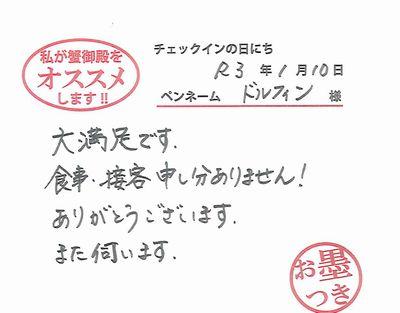 私が蟹御殿を
オススメ
します!!
チェックインの日にち
R3 年 1 月 10 日
ペンネーム ドルフィン 様
大満足です.
食事・接客申し分ありません!
ありがとうございます.
また伺います.
お墨
つき